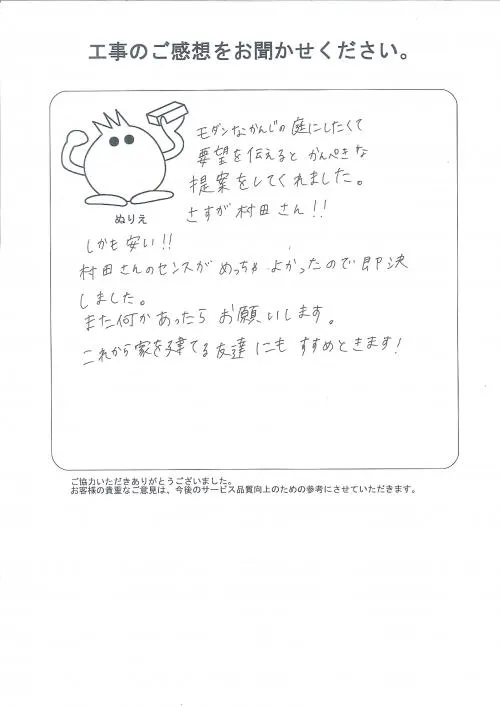 工事のご感想をお聞かせください。
モダンなかんじの庭にしたくて
要望を伝えると かんぺきな
提案をしてくれました。
さすが村田さん!!
ぬりえ
しかも安い!!
村田さんのセンスが めっちゃ よかったので即決
しました。
また何かあったら お願いします。
これから家を建てる友達にも すすめときます!
ご協力いただきありがとうございました。
お客様の貴重なご意見は、今後のサービス品質向上のための参考にさせていただきます。